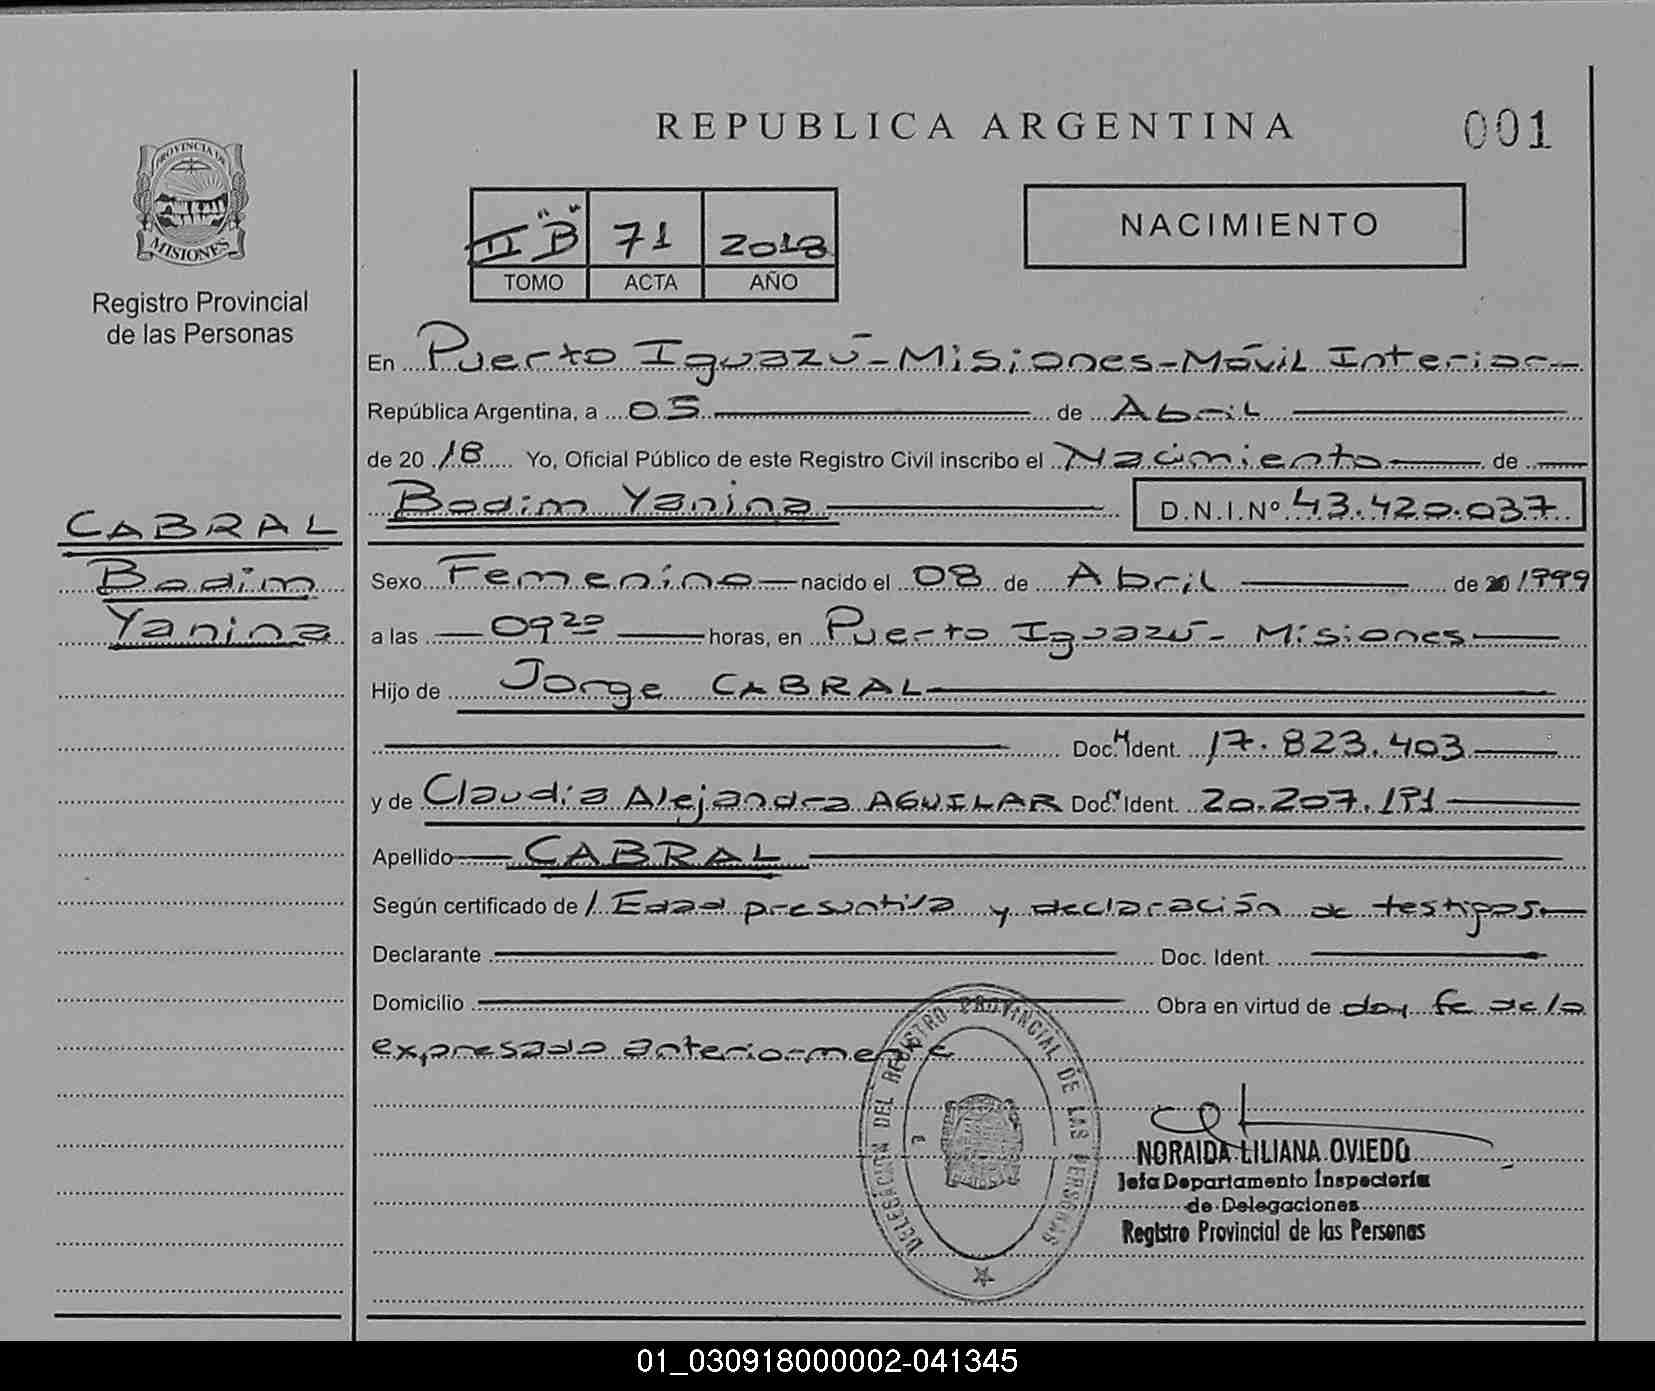 REPUBLICA ARGENTINA
001
PROVINCIA DE
MISIONES
Registro Provincial
de las Personas
II "B" 71 2018
TOMO ACTA AÑO
NACIMIENTO
En Puerto Iguazú - Misiones - Móvil Interior
República Argentina, a 05 de Abril
de 20 18 Yo, Oficial Público de este Registro Civil inscribo el Nacimiento de
Bodim Yanina D.N.I.Nº 43.420.037
CABRAL
Bodim
Yanina
Sexo Femenino nacido el 08 de Abril de 20 1999
a las 09 20 horas, en Puerto Iguazú - Misiones
Hijo de Jorge CABRAL
Doc. Ident. 17.823.403
y de Claudia Alejandra AGUILAR Doc. Ident. 20.207.191
Apellido CABRAL
Según certificado de / Edad presuntiva y declaración de testigos
Declarante Doc. Ident.
Domicilio Obra en virtud de doy fe de lo
expresado anteriormente
DELEGACION DEL REGISTRO PROVINCIAL DE LAS PERSONAS
NORAIDA LILIANA OVIEDO
Jefa Departamento Inspectoría
de Delegaciones
Registro Provincial de las Personas
01_030918000002-041345